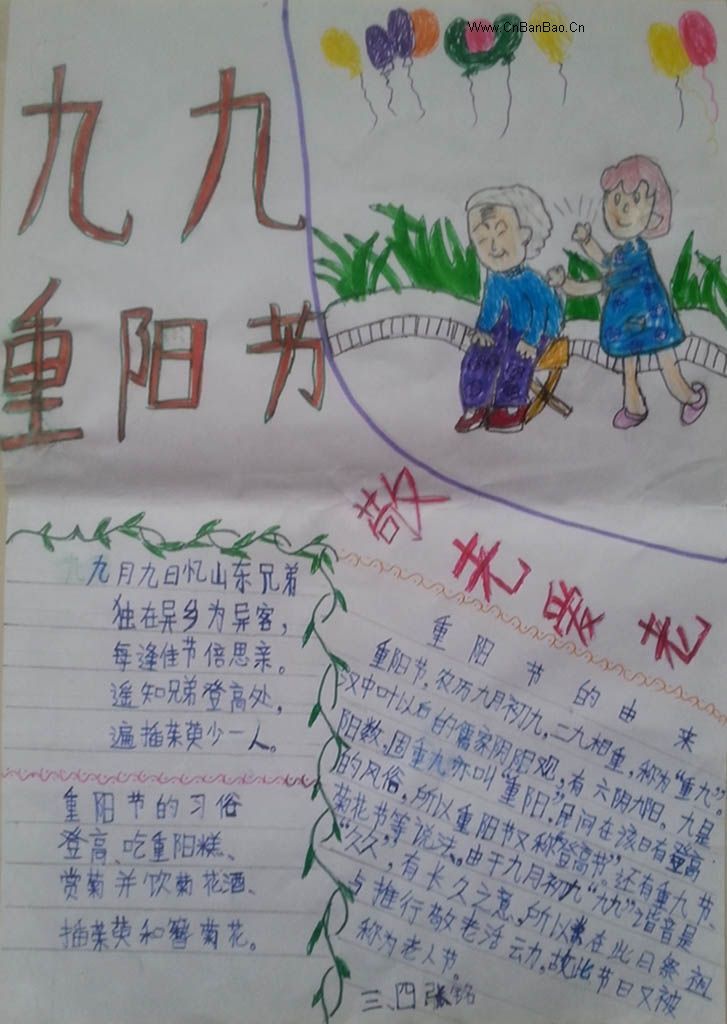 www.CnBanBao.Cn
九九
重阳节
敬老爱老
九月九日忆山东兄弟
独在异乡为异客，
每逢佳节倍思亲。
遥知兄弟登高处，
遍插茱萸少一人。
重阳节的习俗
登高、吃重阳糕、
赏菊并饮菊花酒、
插茱萸和簪菊花。
重阳节的由来
重阳节，农历九月初九，二九相重，称为“重九”。
汉中叶以后的儒家阴阳观，有六阴九阳。九是
阳数，固重九亦叫“重阳”。民间在该日有登高
的风俗，所以重阳节又称“登高节”。还有重九节、
菊花节等说法。由于九月初九“九九”谐音是
“久久”，有长久之意，所以常在此日祭祖
与推行敬老活动，故此节日又被
称为老人节。
三、四 张铭